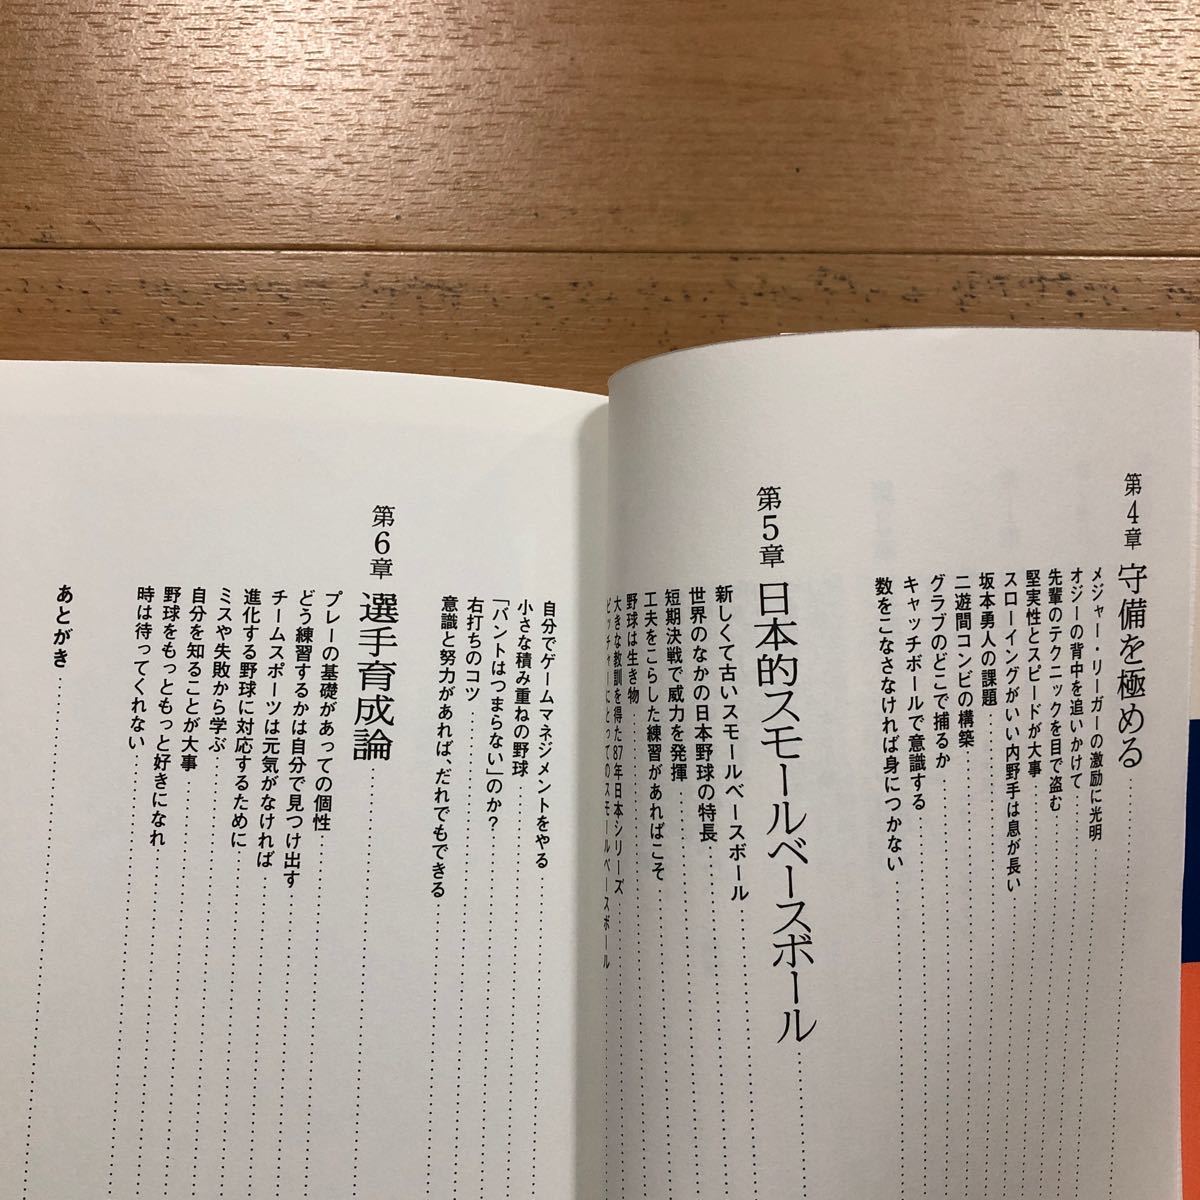 第4章 守備を極める
メジャー・リーガーの激励に光明
オジーの背中を追いかけて
先輩のテクニックを目で盗む
堅実性とスピードが大事
スローイングがいい内野手は息が長い
坂本勇人の課題
二遊間コンビの構築
グラブのどこで捕るか
キャッチボールで意識する
数をこなさなければ身につかない
第5章 日本的スモールベースボール
新しくて古いスモールベースボール
世界のなかの日本野球の特長
短期決戦で威力を発揮
工夫をこらした練習があればこそ
野球は生き物
大きな教訓を得た87年日本シリーズ
ピッチャーにとってのスモールベースボール
自分でゲームマネジメントをやる
小さな積み重ねの野球
「バントはつまらない」のか?
右打ちのコツ
意識と努力があれば、だれでもできる
第6章 選手育成論
プレーの基礎があっての個性
どう練習するかは自分で見つけ出す
チームスポーツは元気がなければ
進化する野球に対応するために
ミスや失敗から学ぶ
自分を知ることが大事
野球をもっともっと好きになれ
時は待ってくれない
あとがき